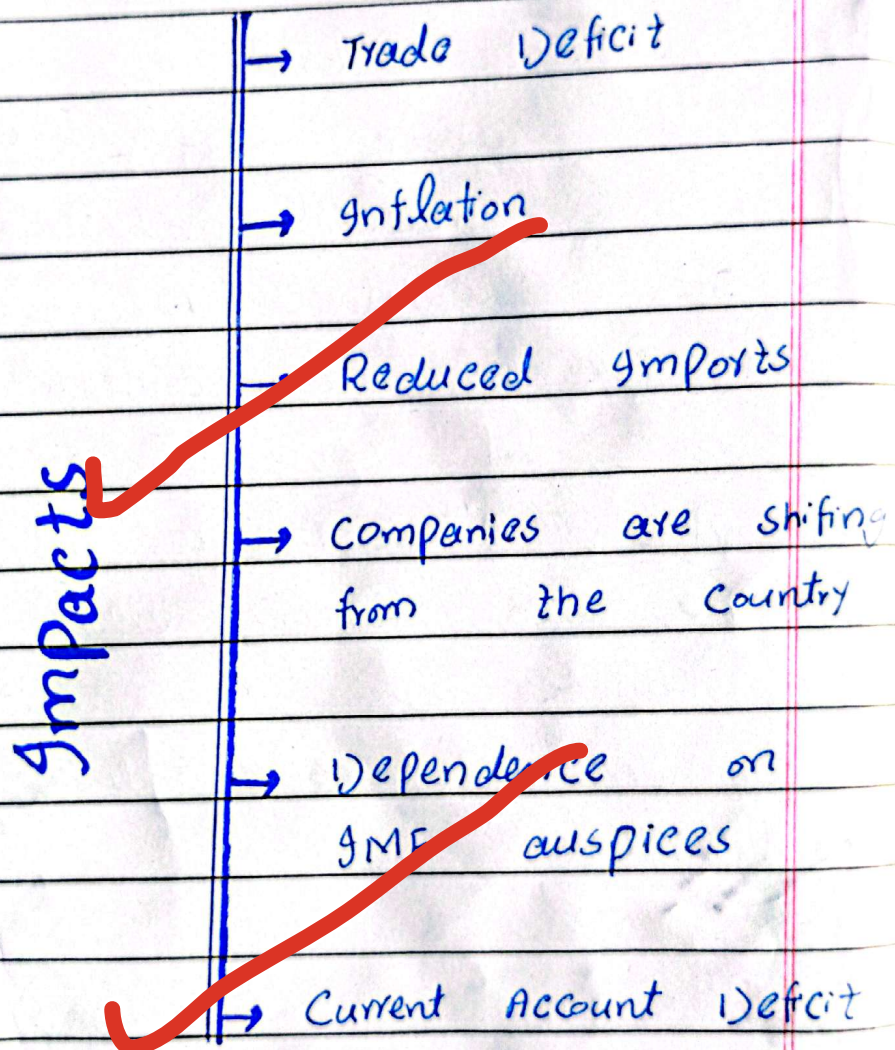 Trade Deficit
Inflation
Reduced Imports
Impacts
Companies are shifing
from the country
Dependence on
IMF auspices
Current Account Deficit